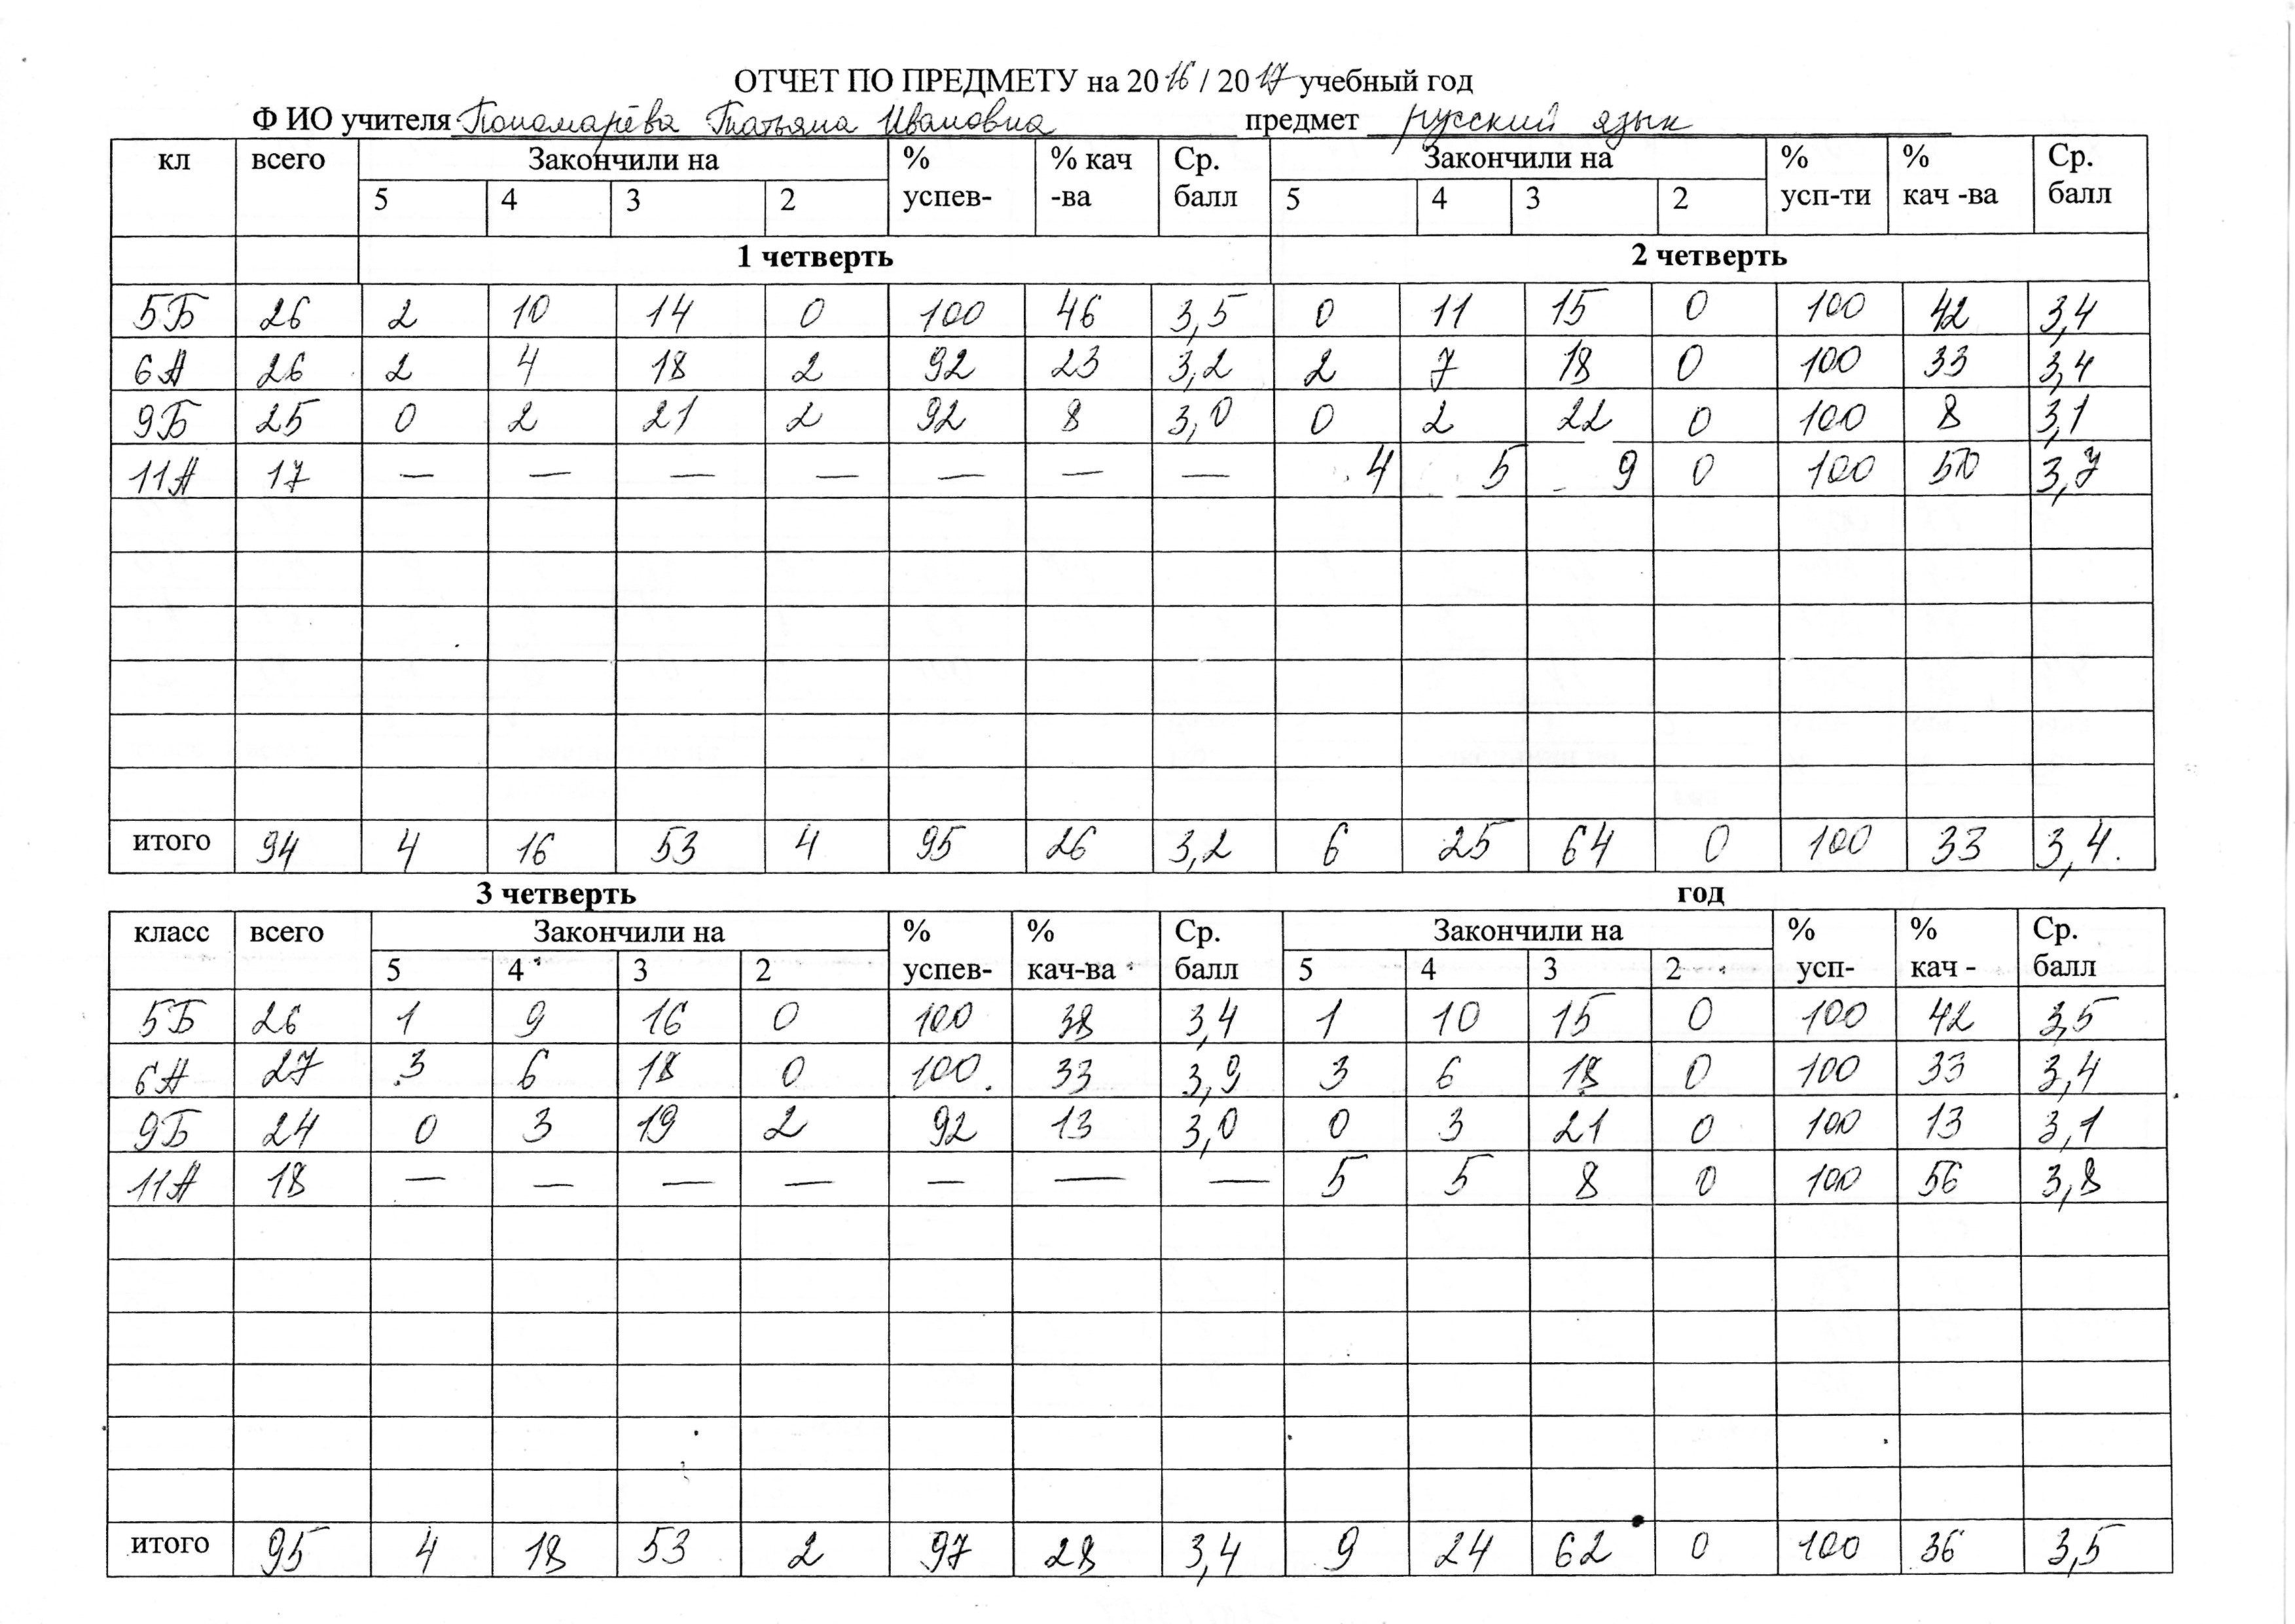 ОТЧЕТ ПО ПРЕДМЕТУ на 2016 / 2017 учебный год
Ф ИО учителя Пономарёва Татьяна Ивановна предмет русский язык
кл всего Закончили на % % кач Ср. Закончили на % % Ср.
5 4 3 2 успев- -ва балл 5 4 3 2 усп-ти кач -ва балл
1 четверть 2 четверть
5Б 26 2 10 14 0 100 46 3,5 0 11 15 0 100 42 3,4
6А 26 2 4 18 2 92 23 3,2 2 7 18 0 100 33 3,4
9Б 25 0 2 21 2 92 8 3,0 0 2 22 0 100 8 3,1
11А 17 — — — — — — — 4 5 9 0 100 50 3,7
итого 94 4 16 53 4 95 26 3,2 6 25 64 0 100 33 3,4.
3 четверть год
класс всего Закончили на % % Ср. Закончили на % % Ср.
5 4 3 2 успев- кач-ва балл 5 4 3 2 усп- кач - балл
5Б 26 1 9 16 0 100 38 3,4 1 10 15 0 100 42 3,5
6А 27 3 6 18 0 100. 33 3,9 3 6 18 0 100 33 3,4
9Б 24 0 3 19 2 92 13 3,0 0 3 21 0 100 13 3,1
11А 18 — — — — — — — 5 5 8 0 100 56 3,8
итого 95 4 18 53 2 97 28 3,4 9 24 62 0 100 36 3,5